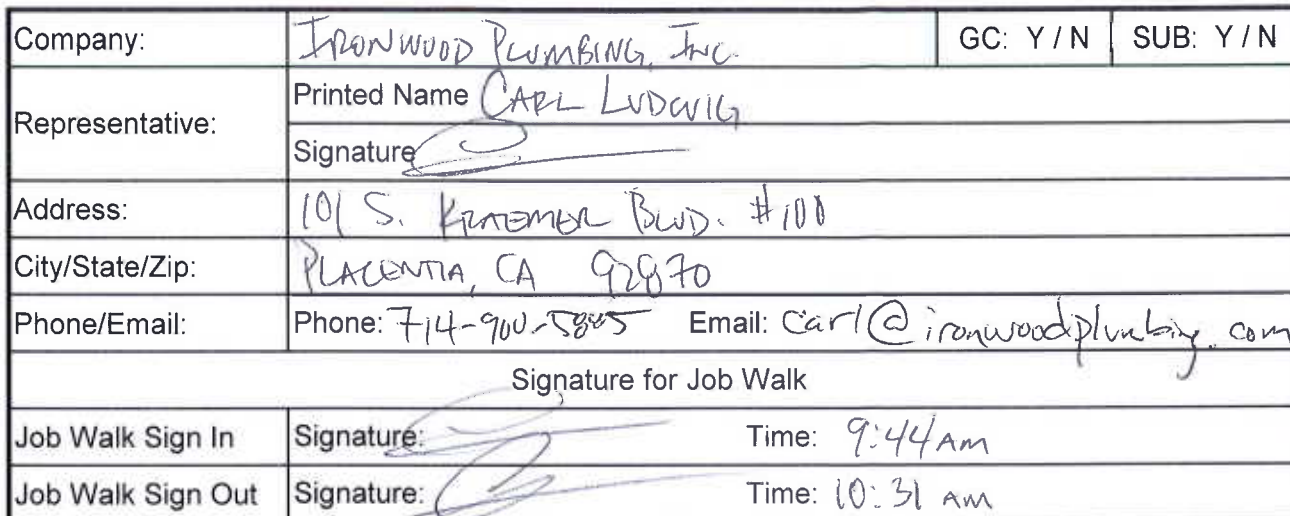 Company: IRONWOOD PLUMBING, INC. GC: Y / N SUB: Y / N
Representative: Printed Name CARL LUDWIG
Signature
Address: 101 S. KRAEMER BLVD. #100
City/State/Zip: PLACENTIA, CA 92870
Phone/Email: Phone: 714-900-5805 Email: carl@ironwoodplumbing.com
Signature for Job Walk
Job Walk Sign In Signature: Time: 9:44 AM
Job Walk Sign Out Signature: Time: 10:31 AM